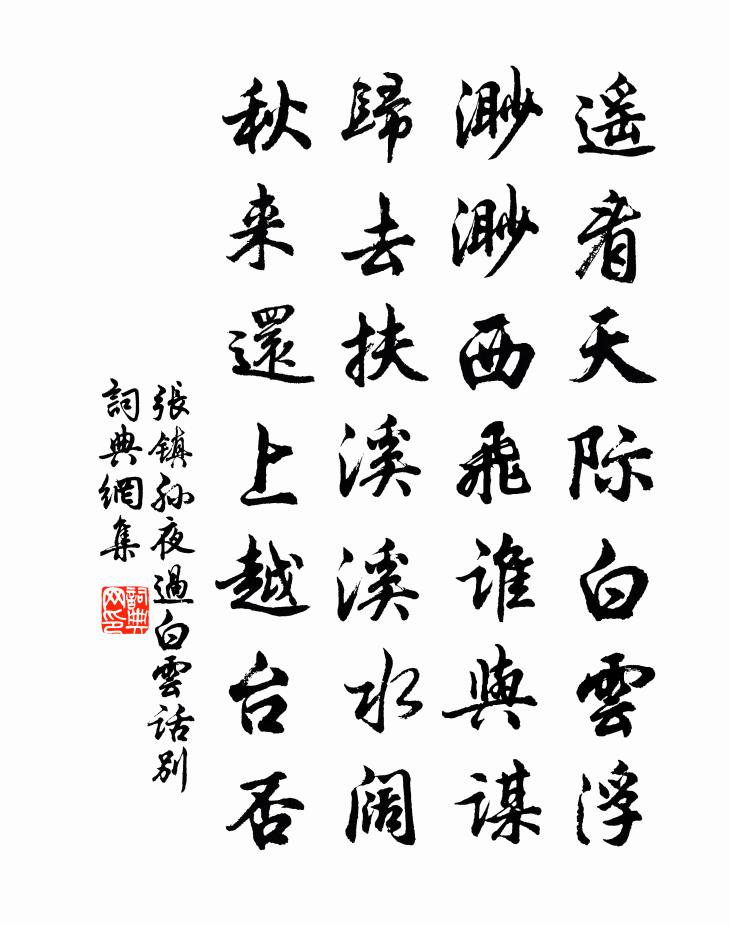 遥看天际白雲浮
渺渺西飛誰與謀
歸去扶溪溪水阔
秋来還上越台否
張鎮孙夜過白雲话別
詞典網集
詞典网印